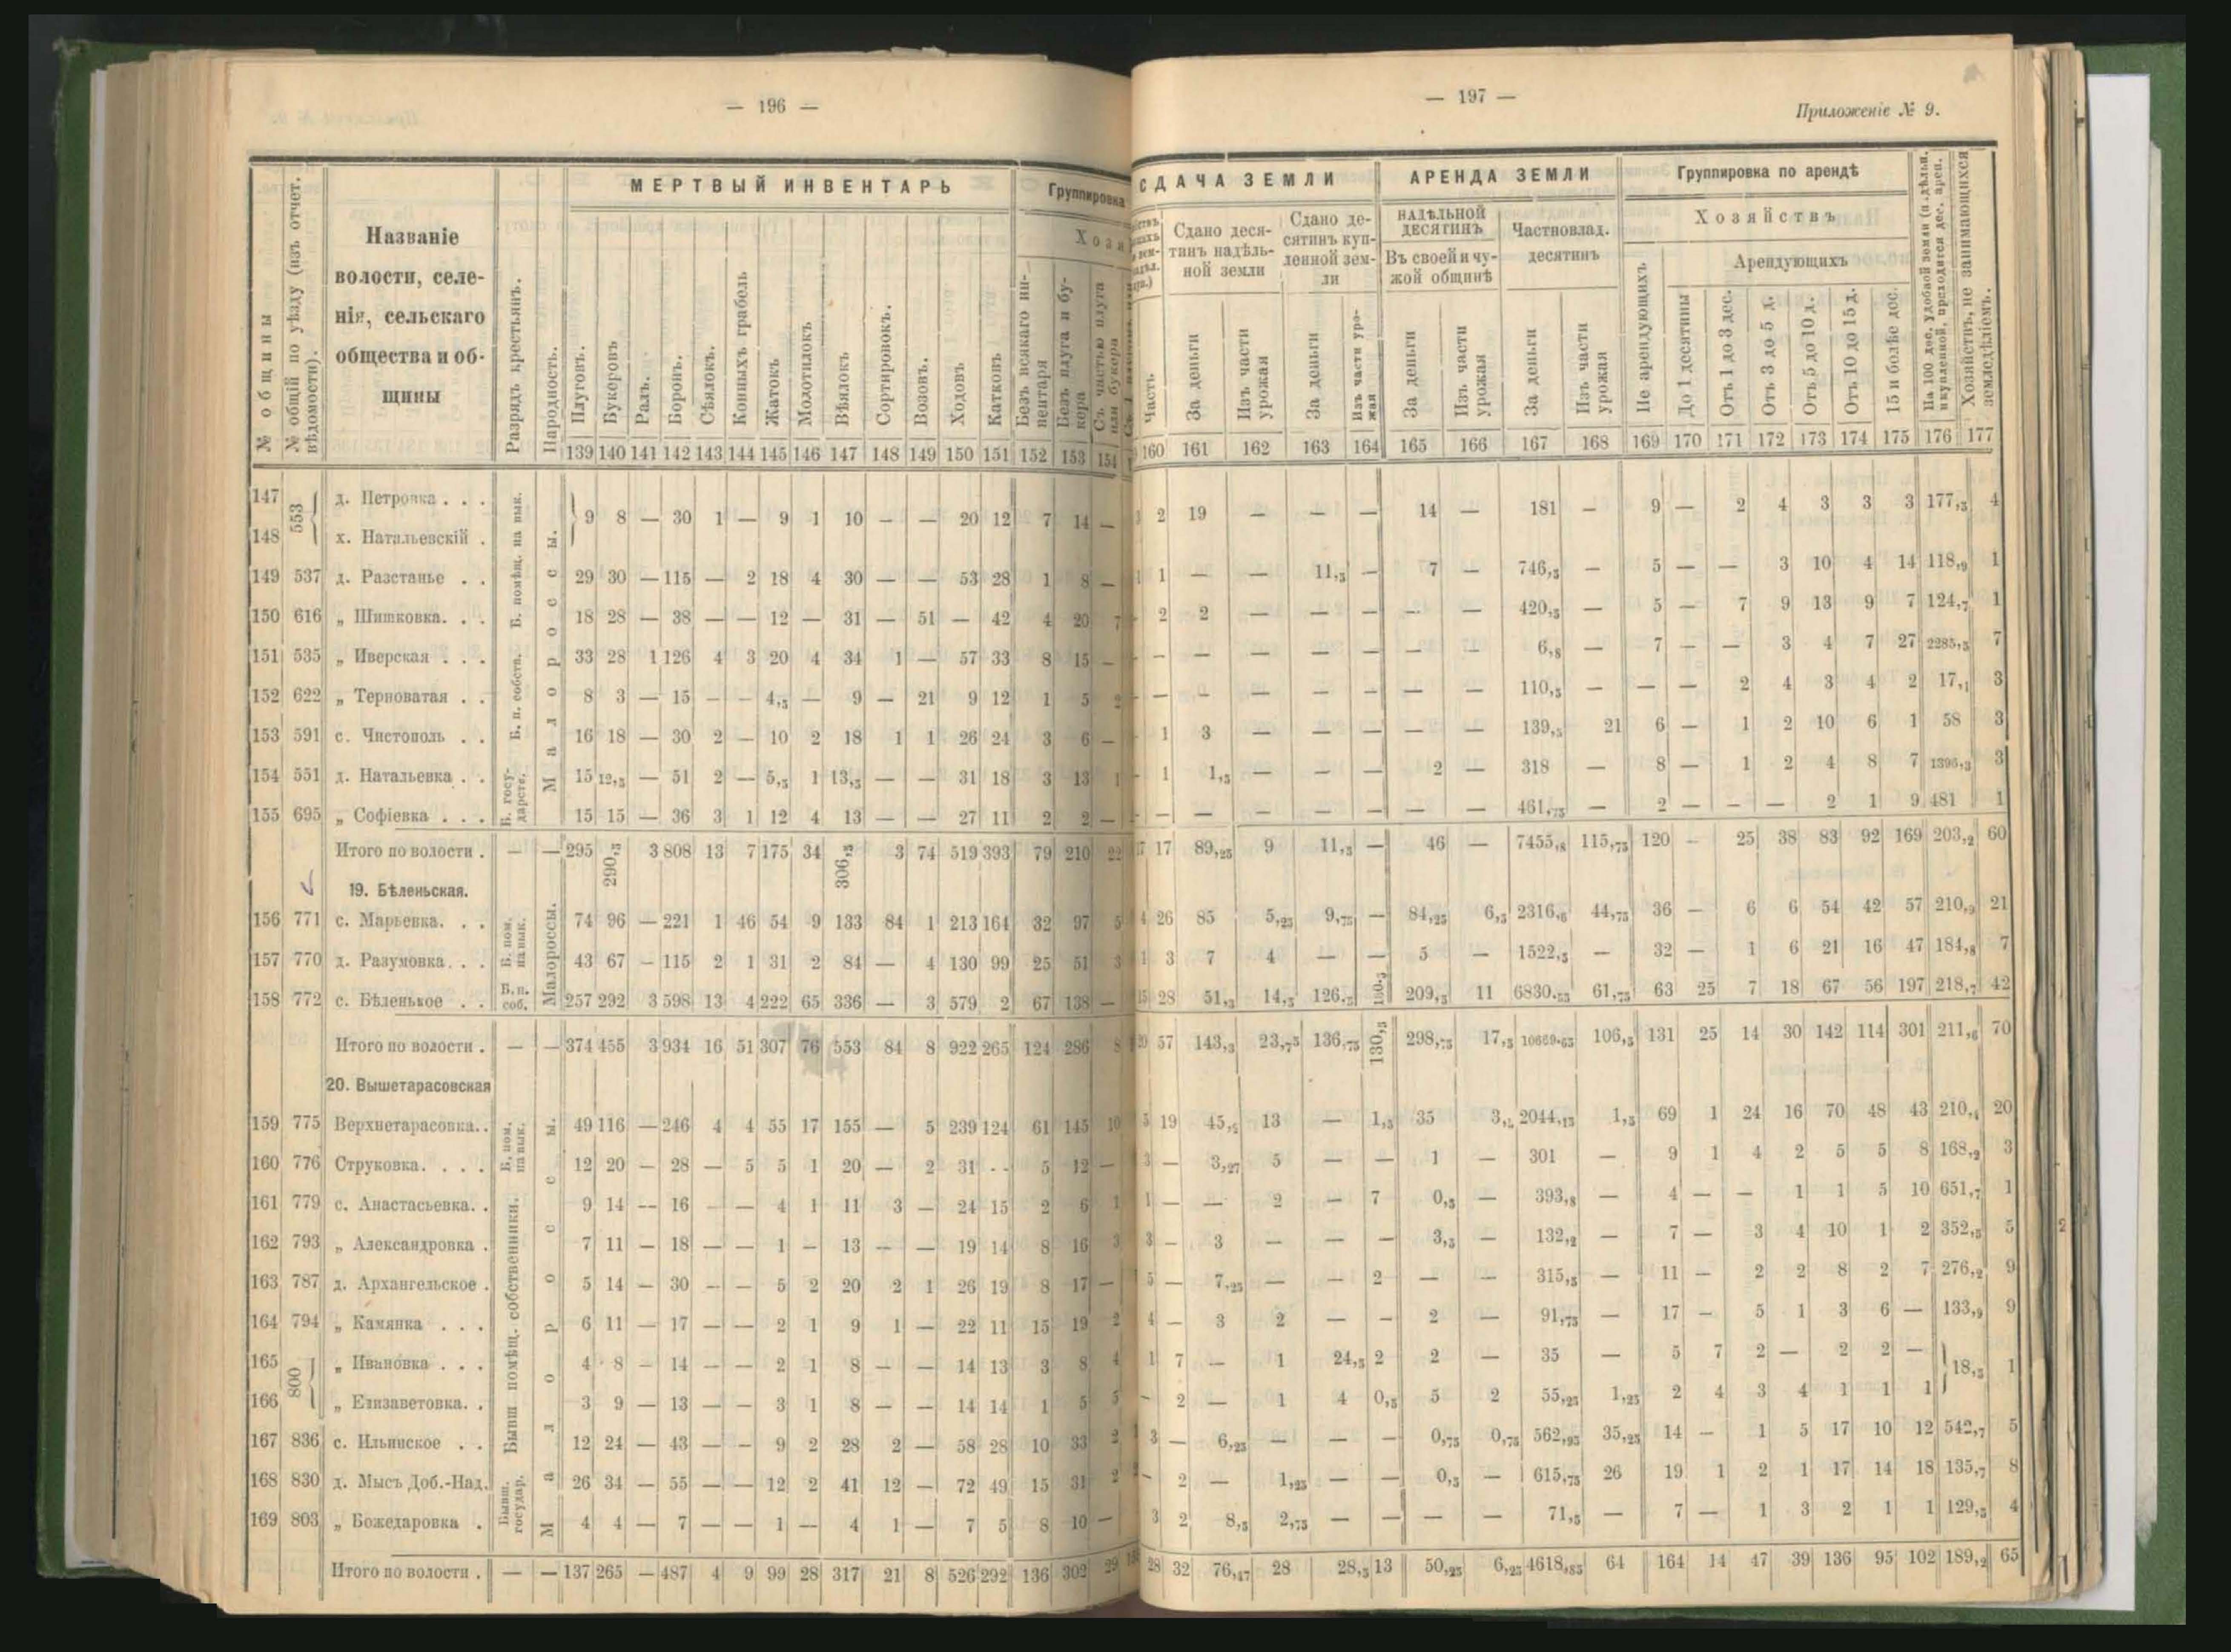 — 196 —
№ общины
№ общій по уѣзду (изъ отчет. вѣдомости).
Названіе
волости, селе-
нія, сельскаго
общества и об-
щины
Разрядъ крестьянъ.
Народность.
МЕРТВЫЙ ИНВЕНТАРЬ
Группировка
Плуговъ.
Букеровъ
Ралъ.
Боронъ.
Сѣялокъ.
Конныхъ грабель
Жатокъ
Молотилокъ
Вѣялокъ
Сортировокъ.
Возовъ.
Ходовъ
Катковъ
Безъ всякаго ин-
вентаря
Безъ плуга и бу-
кера
Съ частью плуга
или букера
139 140 141 142 143 144 145 146 147 148 149 150 151 152 153 154
Б. помѣщ. на вык.
Б. п. собств.
Б. госу-
дарств.
Малороссы.
147 553 д. Петровка . . . 9 8 — 30 1 — 9 1 10 — — 20 12 7 14 —
148 х. Натальевскій .
149 537 д. Разстанье . . 29 30 — 115 — 2 18 4 30 — — 53 28 1 8 —
150 616 „ Шишковка. . . 18 28 — 38 — — 12 — 31 — 51 — 42 4 20 7
151 535 „ Иверская . . . 33 28 1 126 4 3 20 4 34 1 — 57 33 8 15 —
152 622 „ Терноватая . . 8 3 — 15 — — 4,5 — 9 — 21 9 12 1 5 2
153 591 с. Чистополь . . 16 18 — 30 2 — 10 2 18 1 1 26 24 3 6 —
154 551 д. Натальевка . . 15 12,5 — 51 2 — 5,5 1 13,5 — — 31 18 3 13 1
155 695 „ Софіевка . . . 15 15 — 36 3 1 12 4 13 — — 27 11 2 2 —
Итого по волости . — — 295 290,5 3 808 13 7 175 34 306,5 3 74 519 393 79 210 22
19. Бѣленьская.
Б. пом.
на вык.
Б. п.
соб.
Малороссы.
156 771 с. Марьевка. . . 74 96 — 221 1 46 54 9 133 84 1 213 164 32 97 5
157 770 д. Разумовка. . . 43 67 — 115 2 1 31 2 84 — 4 130 99 25 51 3
158 772 с. Бѣленькое . . 257 292 3 598 13 4 222 65 336 — 3 579 2 67 138 —
Итого по волости . — — 374 455 3 934 16 51 307 76 553 84 8 922 265 124 286 8
20. Вышетарасовская
Б. пом.
на вык.
Бывш помѣщ. собственники.
Бывш.
государ.
Малороссы.
159 775 Верхнетарасовка. . 49 116 — 246 4 4 55 17 155 — 5 239 124 61 145 10
160 776 Струковка. . . . 12 20 — 28 — 5 5 1 20 — 2 31 - - 5 12 —
161 779 с. Анастасьевка. . 9 14 -- 16 — — 4 1 11 3 — 24 15 2 6 1
162 793 „ Александровка . 7 11 — 18 — — 1 — 13 — — 19 14 8 16 3
163 787 д. Архангельское . 5 14 — 30 — — 5 2 20 2 1 26 19 8 17 —
164 794 „ Камянка . . . 6 11 — 17 — — 2 1 9 1 — 22 11 15 19 2
165 800 „ Ивановка . . . 4 8 — 14 — — 2 1 8 — — 14 13 3 8 4
166 „ Елизаветовка. . 3 9 — 13 — — 3 1 8 — — 14 14 1 5 5
167 836 с. Ильинское . . 12 24 — 43 — — 9 2 28 2 — 58 28 10 33 2
168 830 д. Мысъ Доб.-Над. 26 34 — 55 — — 12 2 41 12 — 72 49 15 31 2
169 803 „ Божедаровка . 4 4 — 7 — — 1 — 4 1 — 7 5 8 10 —
Итого по волости . — — 137 265 — 487 4 9 99 28 317 21 8 526 292 136 302 29
— 197 —
Приложеніе № 9.
СДАЧА ЗЕМЛИ
АРЕНДА ЗЕМЛИ
Группировка по арендѣ
Сдано деся-
тинъ надѣль-
ной земли
Сдано де-
сятинъ куп-
ленной зем-
ли
НАДѢЛЬНОЙ
ДЕСЯТИНЪ
Въ своей и чу-
жой общинѣ
Частновлад.
десятинъ
Хозяйствъ
Арендующихъ
Часть.
За деньги
Изъ части
урожая
За деньги
Изъ части уро-
жая
За деньги
Изъ части
урожая
За деньги
Изъ части
урожая
Не арендующихъ
До 1 десятины
Отъ 1 до 3 дес.
Отъ 3 до 5 д.
Отъ 5 до 10 д.
Отъ 10 до 15 д.
15 и болѣе дес.
На 100 дес. удобной земли (надѣльн.
и купленной, приходится дес. арен.
Хозяйствъ, не занимающихся
земледѣліемъ.
160 161 162 163 164 165 166 167 168 169 170 171 172 173 174 175 176 177
2 19 — — — 14 — 181 — 9 — 2 4 3 3 3 177,5 4
1 1 — — 11,5 — 7 — 746,5 — 5 — — 3 10 4 14 118,9 1
2 2 — — — — — 420,5 — 5 — 7 9 13 9 7 124,7 1
— — — — — — — 6,8 — 7 — — 3 4 7 27 2285,5 7
— — — — — — — 110,5 — — — 2 4 3 4 2 17,1 3
1 3 — — — — — 139,5 21 6 — 1 2 10 6 1 58 3
1 1,5 — — — 2 — 318 — 8 — 1 2 4 8 7 1396,3 3
— — — — — — — 461,75 — 2 — — — 2 1 9 481 1
17 17 89,25 9 11,5 — 46 — 7455,8 115,75 120 — 25 38 83 92 169 203,2 60
4 26 85 5,25 9,75 — 84,25 6,5 2316,6 44,75 36 — 6 6 54 42 57 210,9 21
1 3 7 4 — — 5 — 1522,5 — 32 — 1 6 21 16 47 184,8 7
15 28 51,3 14,5 126.5 130.5 209,5 11 6830.53 61,75 63 25 7 18 67 56 197 218,7 42
20 57 143,3 23,75 136,75 130,5 298,75 17,5 10669.63 106,5 131 25 14 30 142 114 301 211,6 70
5 19 45,2 13 — 1,5 35 3, 2044,15 1,5 69 1 24 16 70 48 43 210,4 20
3 — 3,27 5 — — 1 — 301 — 9 1 4 2 5 5 8 168,2 3
1 — — 2 — 7 0,5 — 393,8 — 4 — — 1 1 5 10 651,7 1
3 — 3 — — — 3,5 — 132,2 — 7 — 3 4 10 1 2 352,5 5
5 — 7,25 — — 2 — — 315,5 — 11 — 2 2 8 2 7 276,2 9
4 — 3 2 — — 2 — 91,75 — 17 — 5 1 3 6 — 133,9 9
1 7 — 1 24,5 2 2 — 35 — 5 7 2 — 2 2 — 18,5 1
— 2 — 1 4 0,5 5 2 55,25 1,25 2 4 3 4 1 1 1
3 — 6,25 — — — 0,75 0,75 562,95 35,25 14 — 1 5 17 10 12 542,7 5
— 2 — 1,25 — — 0,5 — 615,75 26 19 1 2 1 17 14 18 135,7 8
3 2 8,5 2,75 — — — — 71,5 — 7 — 1 3 2 1 1 129,5 4
28 32 76,47 28 28,5 13 50,25 6,25 4618,85 64 164 14 47 39 136 95 102 189,2 65